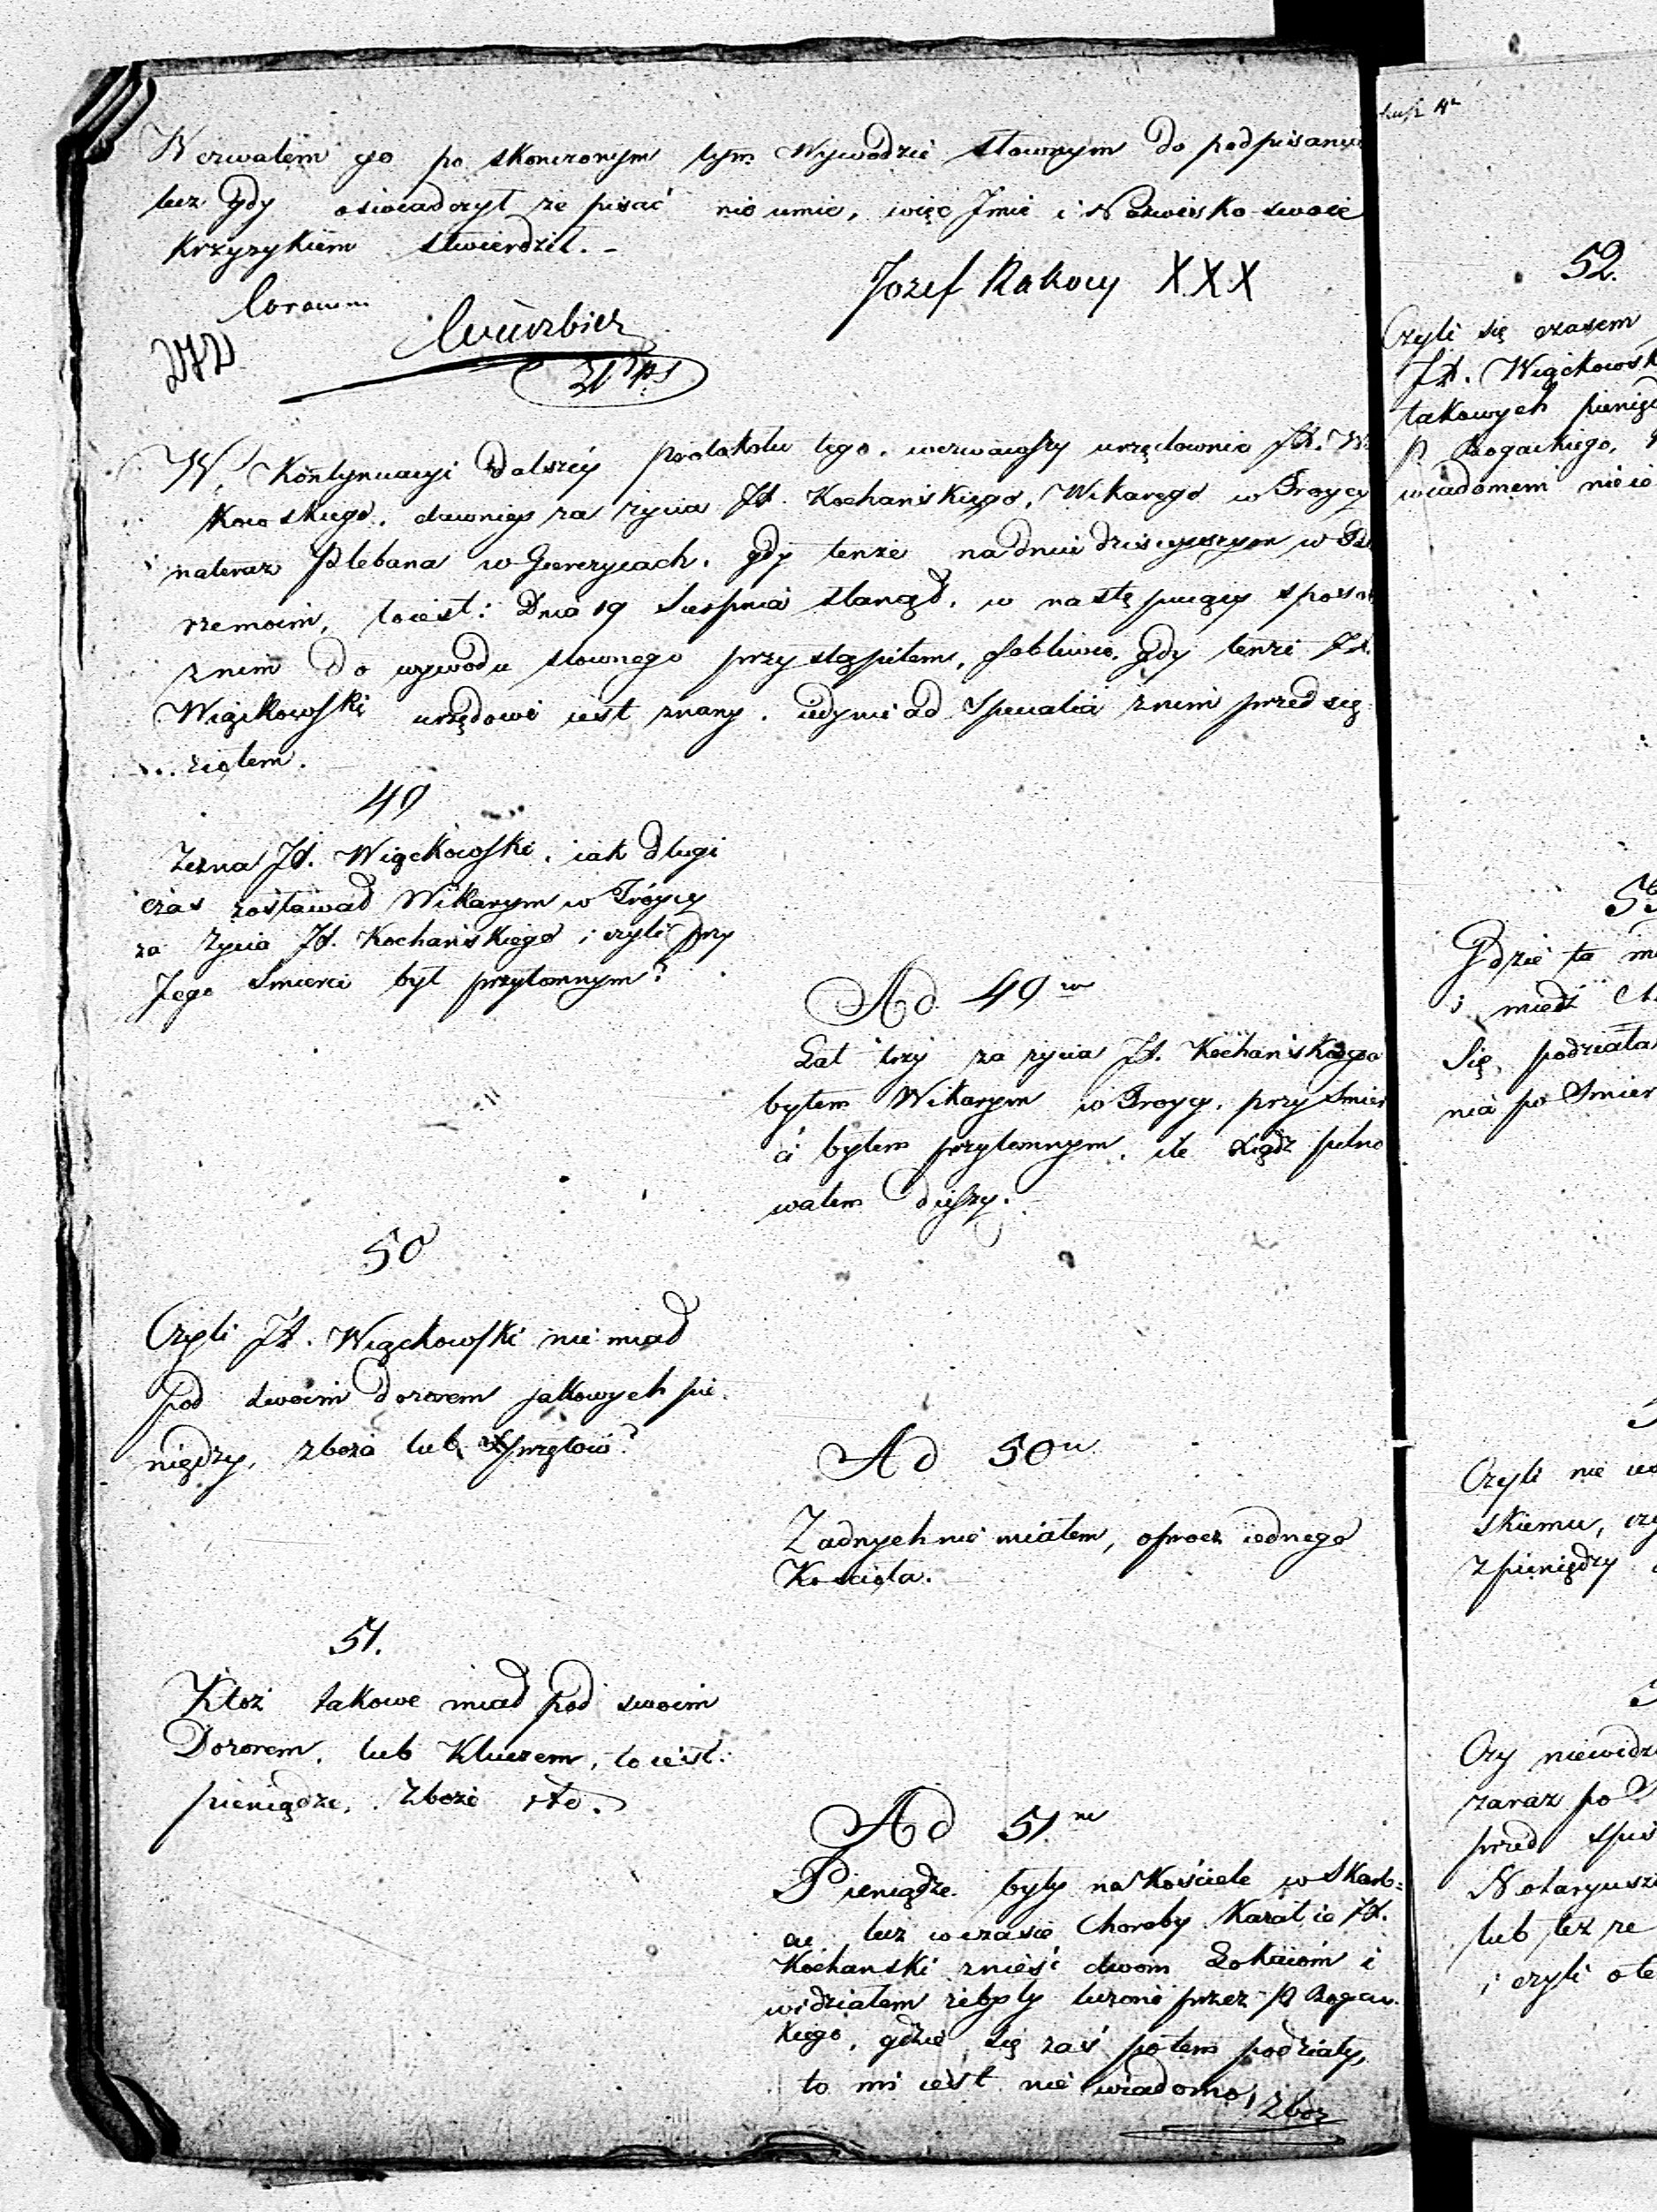 Wezwałem go po skonczonym tym Wywodzie słownym do podpisania
lecz gdy oświadczył że pisać nie umie, więc Jmie i Nazwisko swoie
krzyżykiem stwierdził.
Jozef Rakocy XXX
Coram
272
W kontynuacyi dalszey protokołu tego, wezwawszy urzędownie JX. W
kowskiego, dawniey za życia JX. Kochańskiego, Wikarego w Troycy
nateraz Plebana w , gdy tenże na dniu dzisieyszym w
rzemoim, toiest: Dnia 19 Sierpnia stanął, w następuiący sposob
z nim do wywodu słownego przystąpiłem, osobliwie, gdy tenże JX.
Wiąckowski urzędowi iest znany, iedynie ad Specialia z nim przedsię
wziołem.
49
Zezna JX. Wiąckowski, iak długi
czas zostawał Wikarym w Tróycy
za życia JX. Kochańskiego i czyli przy
Jego śmierci był przytomnym?
Ad 49m
Lat trzy za życia JX. Kochańskiego
byłem Wikarym w Troycy, przy śmier
ci byłem przytomnym, ile Xiądz pilno
wałem duszy.
50
Czyli JX. Wiąckowski nie miał
pod swoim dozorem jakowych pie
niędzy, zboża lub sprzętow?
Ad 50m
Zadnych nie miałem, oprocz iednego
Kościoła.
51.
Ktoż takowe miał pod swoim
Dozorem, lub Kluczem, to iest:
pieniądze, Zboże etc.
Ad 51.m
Pieniądze były na Kościele w Skarb=
cu lecz w czasie Choroby Kazał ie JX.
Kochanski znieść dwom Lokaiom i
widziałem że były liczone przez P Rogac
kiego, gdzie się zaś potem podziały,
to mi iest nie wiadomo,
Zboż
52.
Czyli się czasem
JX. Wiąckowsk
takowych pienięd
P. Rogackiego,
wiadomem nie ie
Gdzie ta
i miedź
się podziała
nia po śmier
Czyli nie
skiemu, czy
z pieniędzy
Czy niewidzi
zaraz po
przed spis
Notaryusz
lub też ze
i czyli o te